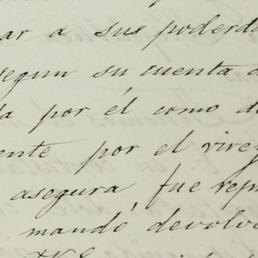 ar a sus poderda
segun su cuenta
a por él como d
ente por el virey
asegura, fue rep
mandó devolv